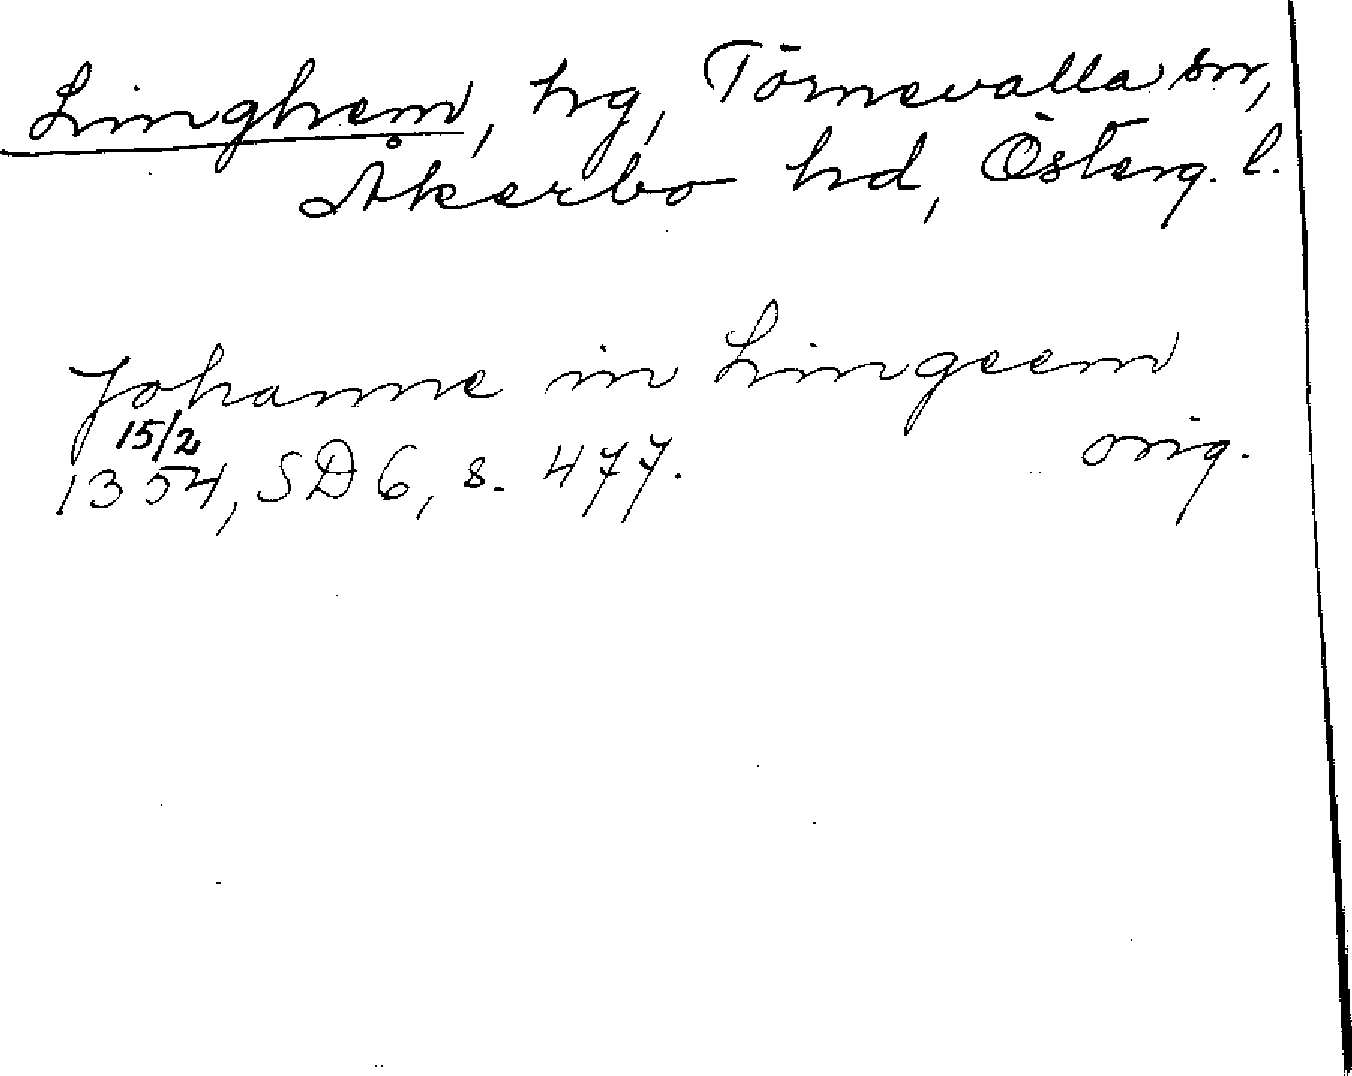 Linghem, hg, Törnevalla sn,
Åkerbo hd, Österg. l.
Johanne in Lingeem
15/2
1354, SD 6, s. 477. orig.